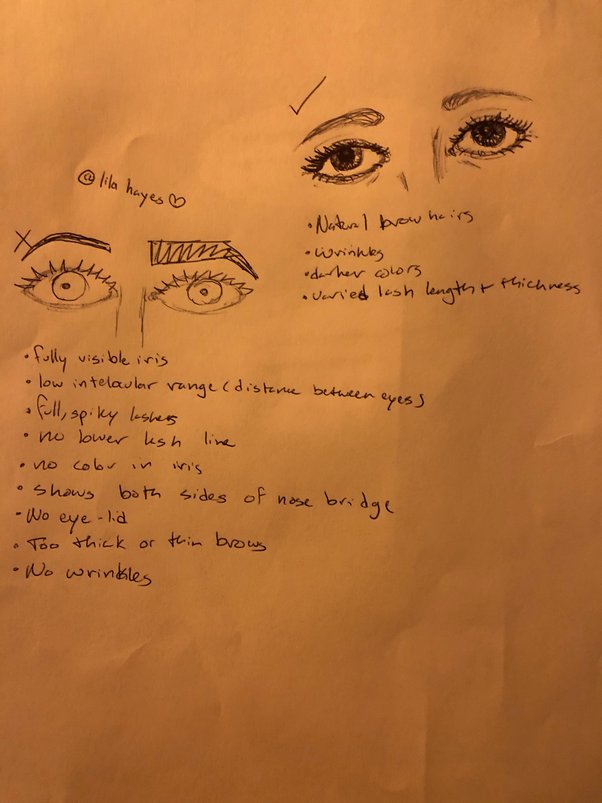 @lila hayes♡
✓
• Natural brow hairs
• wrinkles
• darker colors
• varied lash length + thickness
X
• fully visible iris
• low inteloculur range (distance between eyes)
• full, spiky lashes
• no lower lash line
• no color in iris
• shows both sides of nose bridge
• No eye-lid
• Too thick or thin brows
• No wrinkles